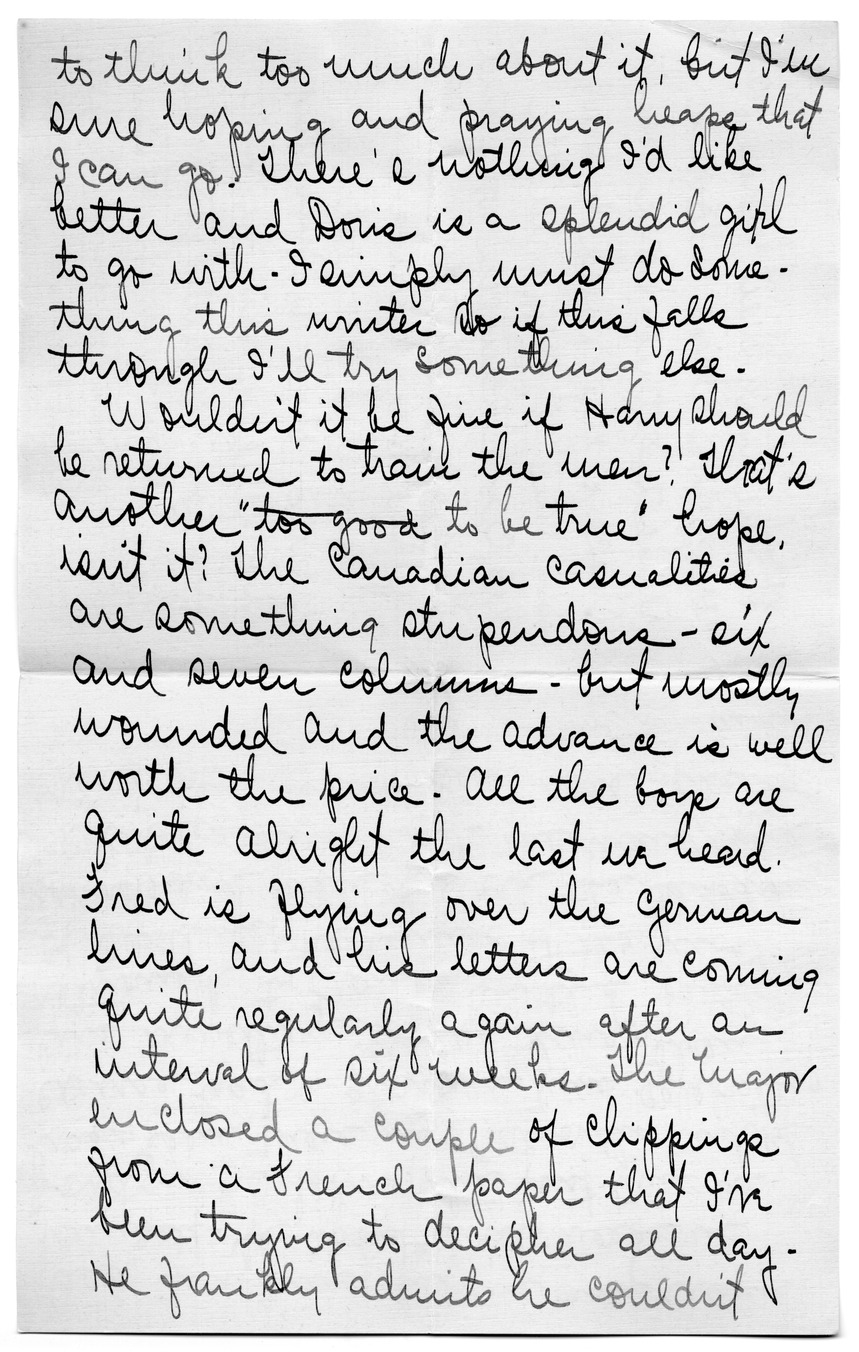 to think too much about it, but I'm
sure hoping and praying heaps that
I can go. There's nothing I'd like
better and Doris is a splendid girl
to go with - I simply must do some-
thing this winter so if this falls
through I'll try something else -
Wouldn't it be fine if Harry should
be returned to train the men? That's
another "too good to be true" hope,
isn't it? The Canadian casualities
are something stupendous - six
and seven columns - but mostly
wounded and the advance is well
worth the price - All the boys are
quite alright the last we heard.
Fred is flying over the German
lines, and his letters are coming
quite regularly again after an
interval of six weeks - The Major
enclosed a couple of clippings
from a French paper that I've
been trying to decipher all day -
He frankly admits he couldn't